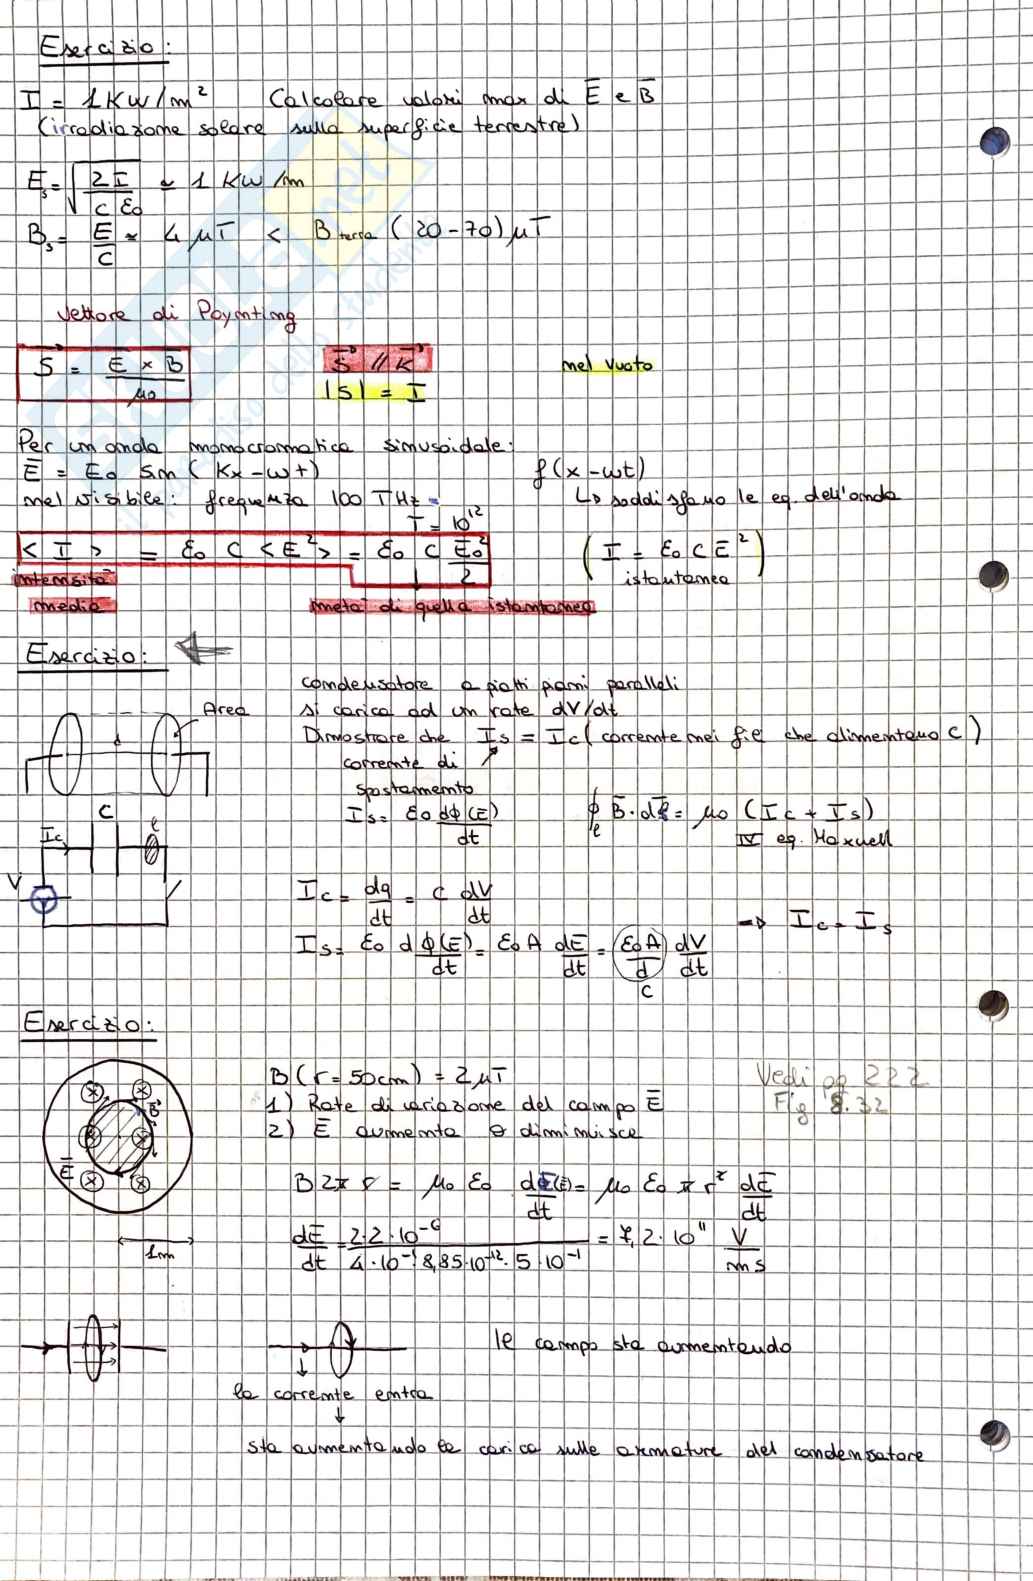 Esercizio:
I = 1KW/m² Calcolare valori max di E̅ e B̅
(irradiazione solare sulla superficie terrestre)
E_s = √(2I / c ε₀) ≃ 1 KW/m
B_s = E/c ≃ 4 μT < B terra (20-70) μT
Vettore di Poynting
S⃗ = E × B / μ₀ S⃗ // K⃗ nel vuoto
|S| = I
Per un onda monocromatica sinusoidale:
E̅ = E₀ sin (Kx-ωt) f(x-ωt)
nel visibile: frequenza 100 THz = ↳ soddisfano le eq. dell'onda
T = 10¹²
< I > = ε₀ c <E²> = ε₀ c E₀²/2 (I = ε₀ c E̅²)
intensità istantanea
media metà di quella istantanea
Esercizio:
condensatore a piatti piani paralleli
Area si carica ad un rate dV/dt
d Dimostrare che I_s = I_c (corrente nei fili che alimentano C)
corrente di
spostamento
C I_s = ε₀ dϕ(E)/dt ∮_ℓ B̅·dℓ̅ = μ₀ (I_c + I_s)
I_c ℓ IV eq. Maxwell
V I_c = dq/dt = C dV/dt
⇒ I_c = I_s
I_s = ε₀ dϕ(E)/dt = ε₀ A dE/dt = ε₀A/d dV/dt
C
Esercizio:
B (r = 50cm) = 2 μT Vedi pg 222
1) Rate di variazione del campo E̅ Fig 8.32
2) E̅ aumenta o diminuisce
B⃗
E̅
B 2π r = μ₀ ε₀ dϕ(E)/dt = μ₀ ε₀ π r² dE/dt
dE/dt = 2·2·10⁻⁶ / 4·10⁻⁷·8,85·10⁻¹²·5·10⁻¹ = 7,2·10¹¹ V/ms
1m
le campo sta aumentando
la corrente entra
↓
sta aumentando la carica sulle armature del condensatore